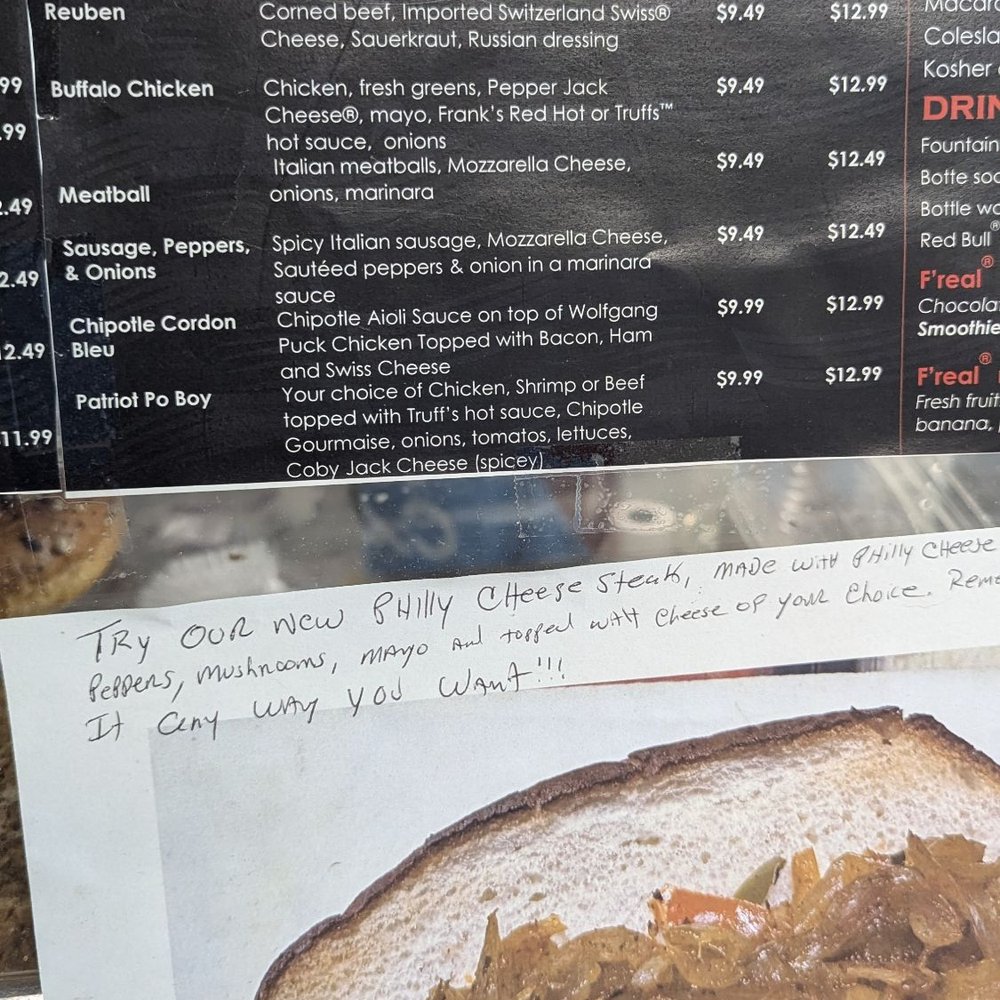 Reuben Corned beef, Imported Switzerland Swiss® $9.49 $12.99
Cheese, Sauerkraut, Russian dressing
Buffalo Chicken Chicken, fresh greens, Pepper Jack $9.49 $12.99
Cheese®, mayo, Frank's Red Hot or Truffs™
hot sauce, onions
Meatball Italian meatballs, Mozzarella Cheese, $9.49 $12.49
onions, marinara
Sausage, Peppers, Spicy Italian sausage, Mozzarella Cheese, $9.49 $12.49
& Onions Sautéed peppers & onion in a marinara
sauce
Chipotle Cordon Chipotle Aioli Sauce on top of Wolfgang $9.99 $12.99
Bleu Puck Chicken Topped with Bacon, Ham
and Swiss Cheese
Patriot Po Boy Your choice of Chicken, Shrimp or Beef $9.99 $12.99
topped with Truff's hot sauce, Chipotle
Gourmaise, onions, tomatos, lettuces,
Coby Jack Cheese (spicey)
99
.99
2.49
2.49
12.49
11.99
Kosher
Fountain
Botte
Bottle
Red Bull®
F'real®
Smoothie
F'real®
Fresh fruit
banana,
TRy OUR New PHilly CHeese Steak, MADE WitH PHilly CHeese
Peppers, Mushrooms, MAyo And topped witH Cheese of your Choice.
It Any WAy You WAnt!!!